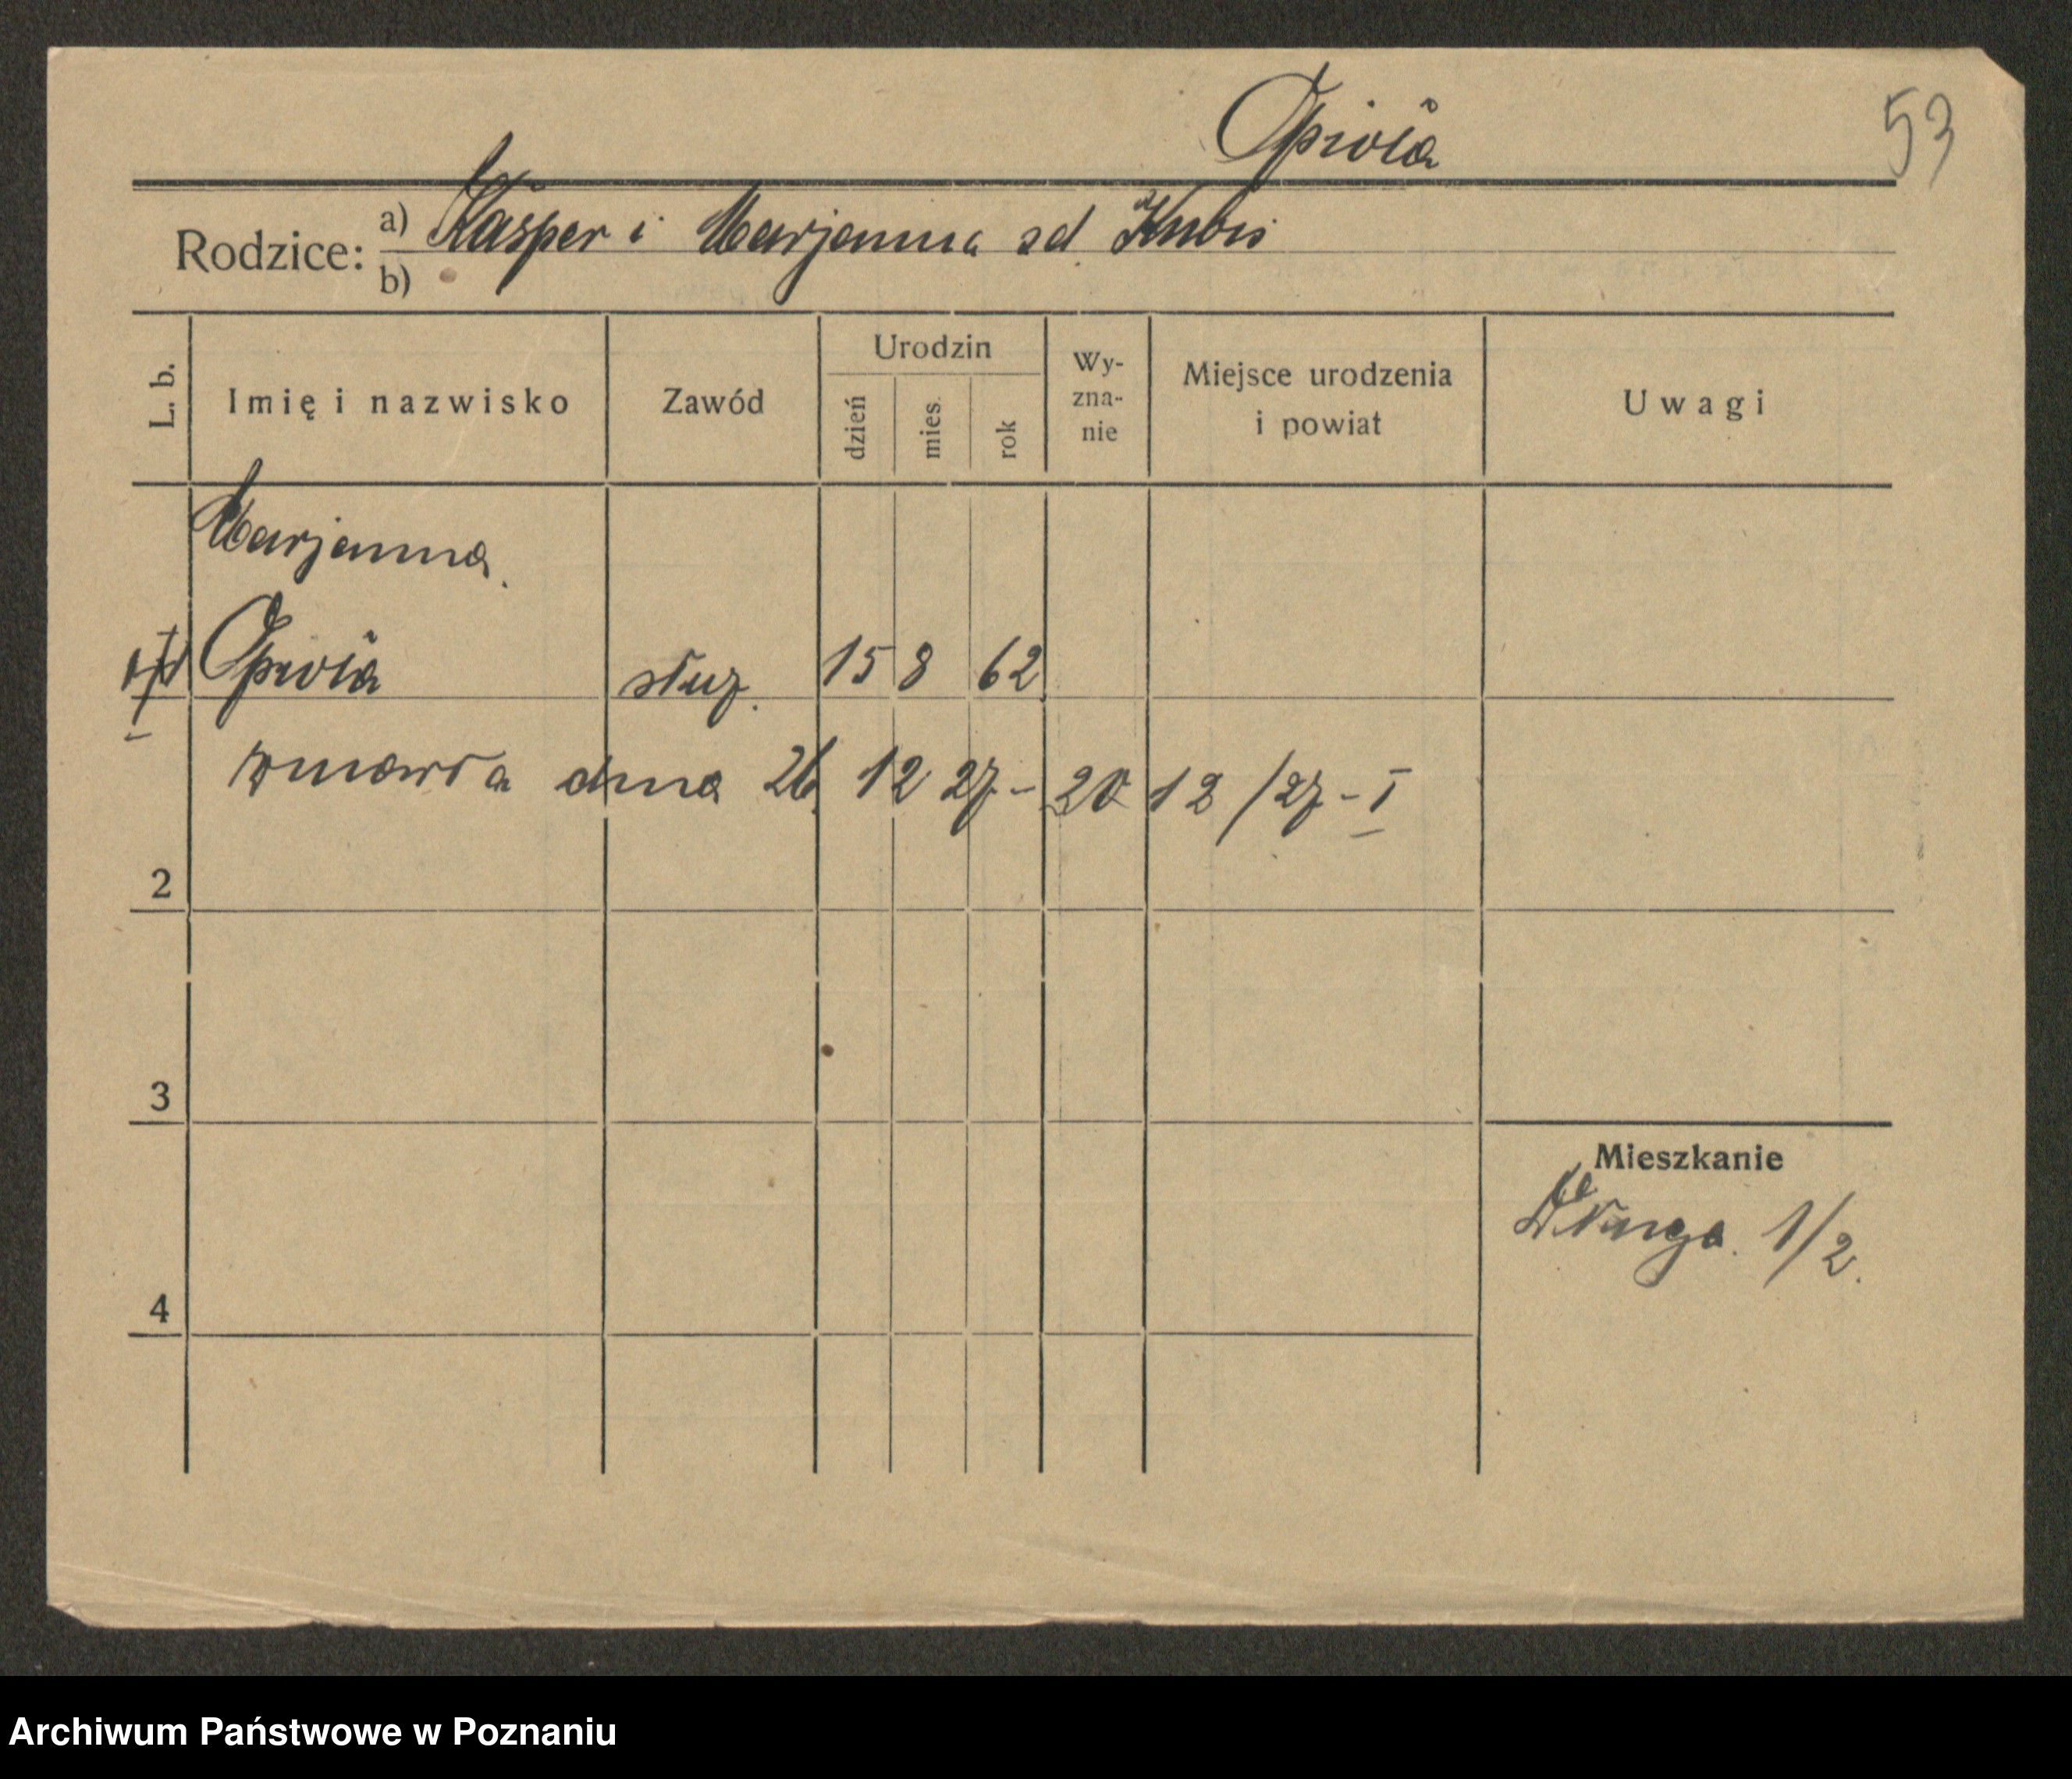 Opioła
53
Rodzice: a) Kasper i Marjanna zd. Kubis
b)
L. b.
Imię i nazwisko
Zawód
Urodzin
dzień
mies.
rok
Wy-
zna-
nie
Miejsce urodzenia
i powiat
Uwagi
Marjanna
Opioła służ. 15 8 62
zmarła dnia 26 12 27 - 28 12/27 - I
2
3
4
Mieszkanie
Długa 1/2.
Archiwum Państwowe w Poznaniu